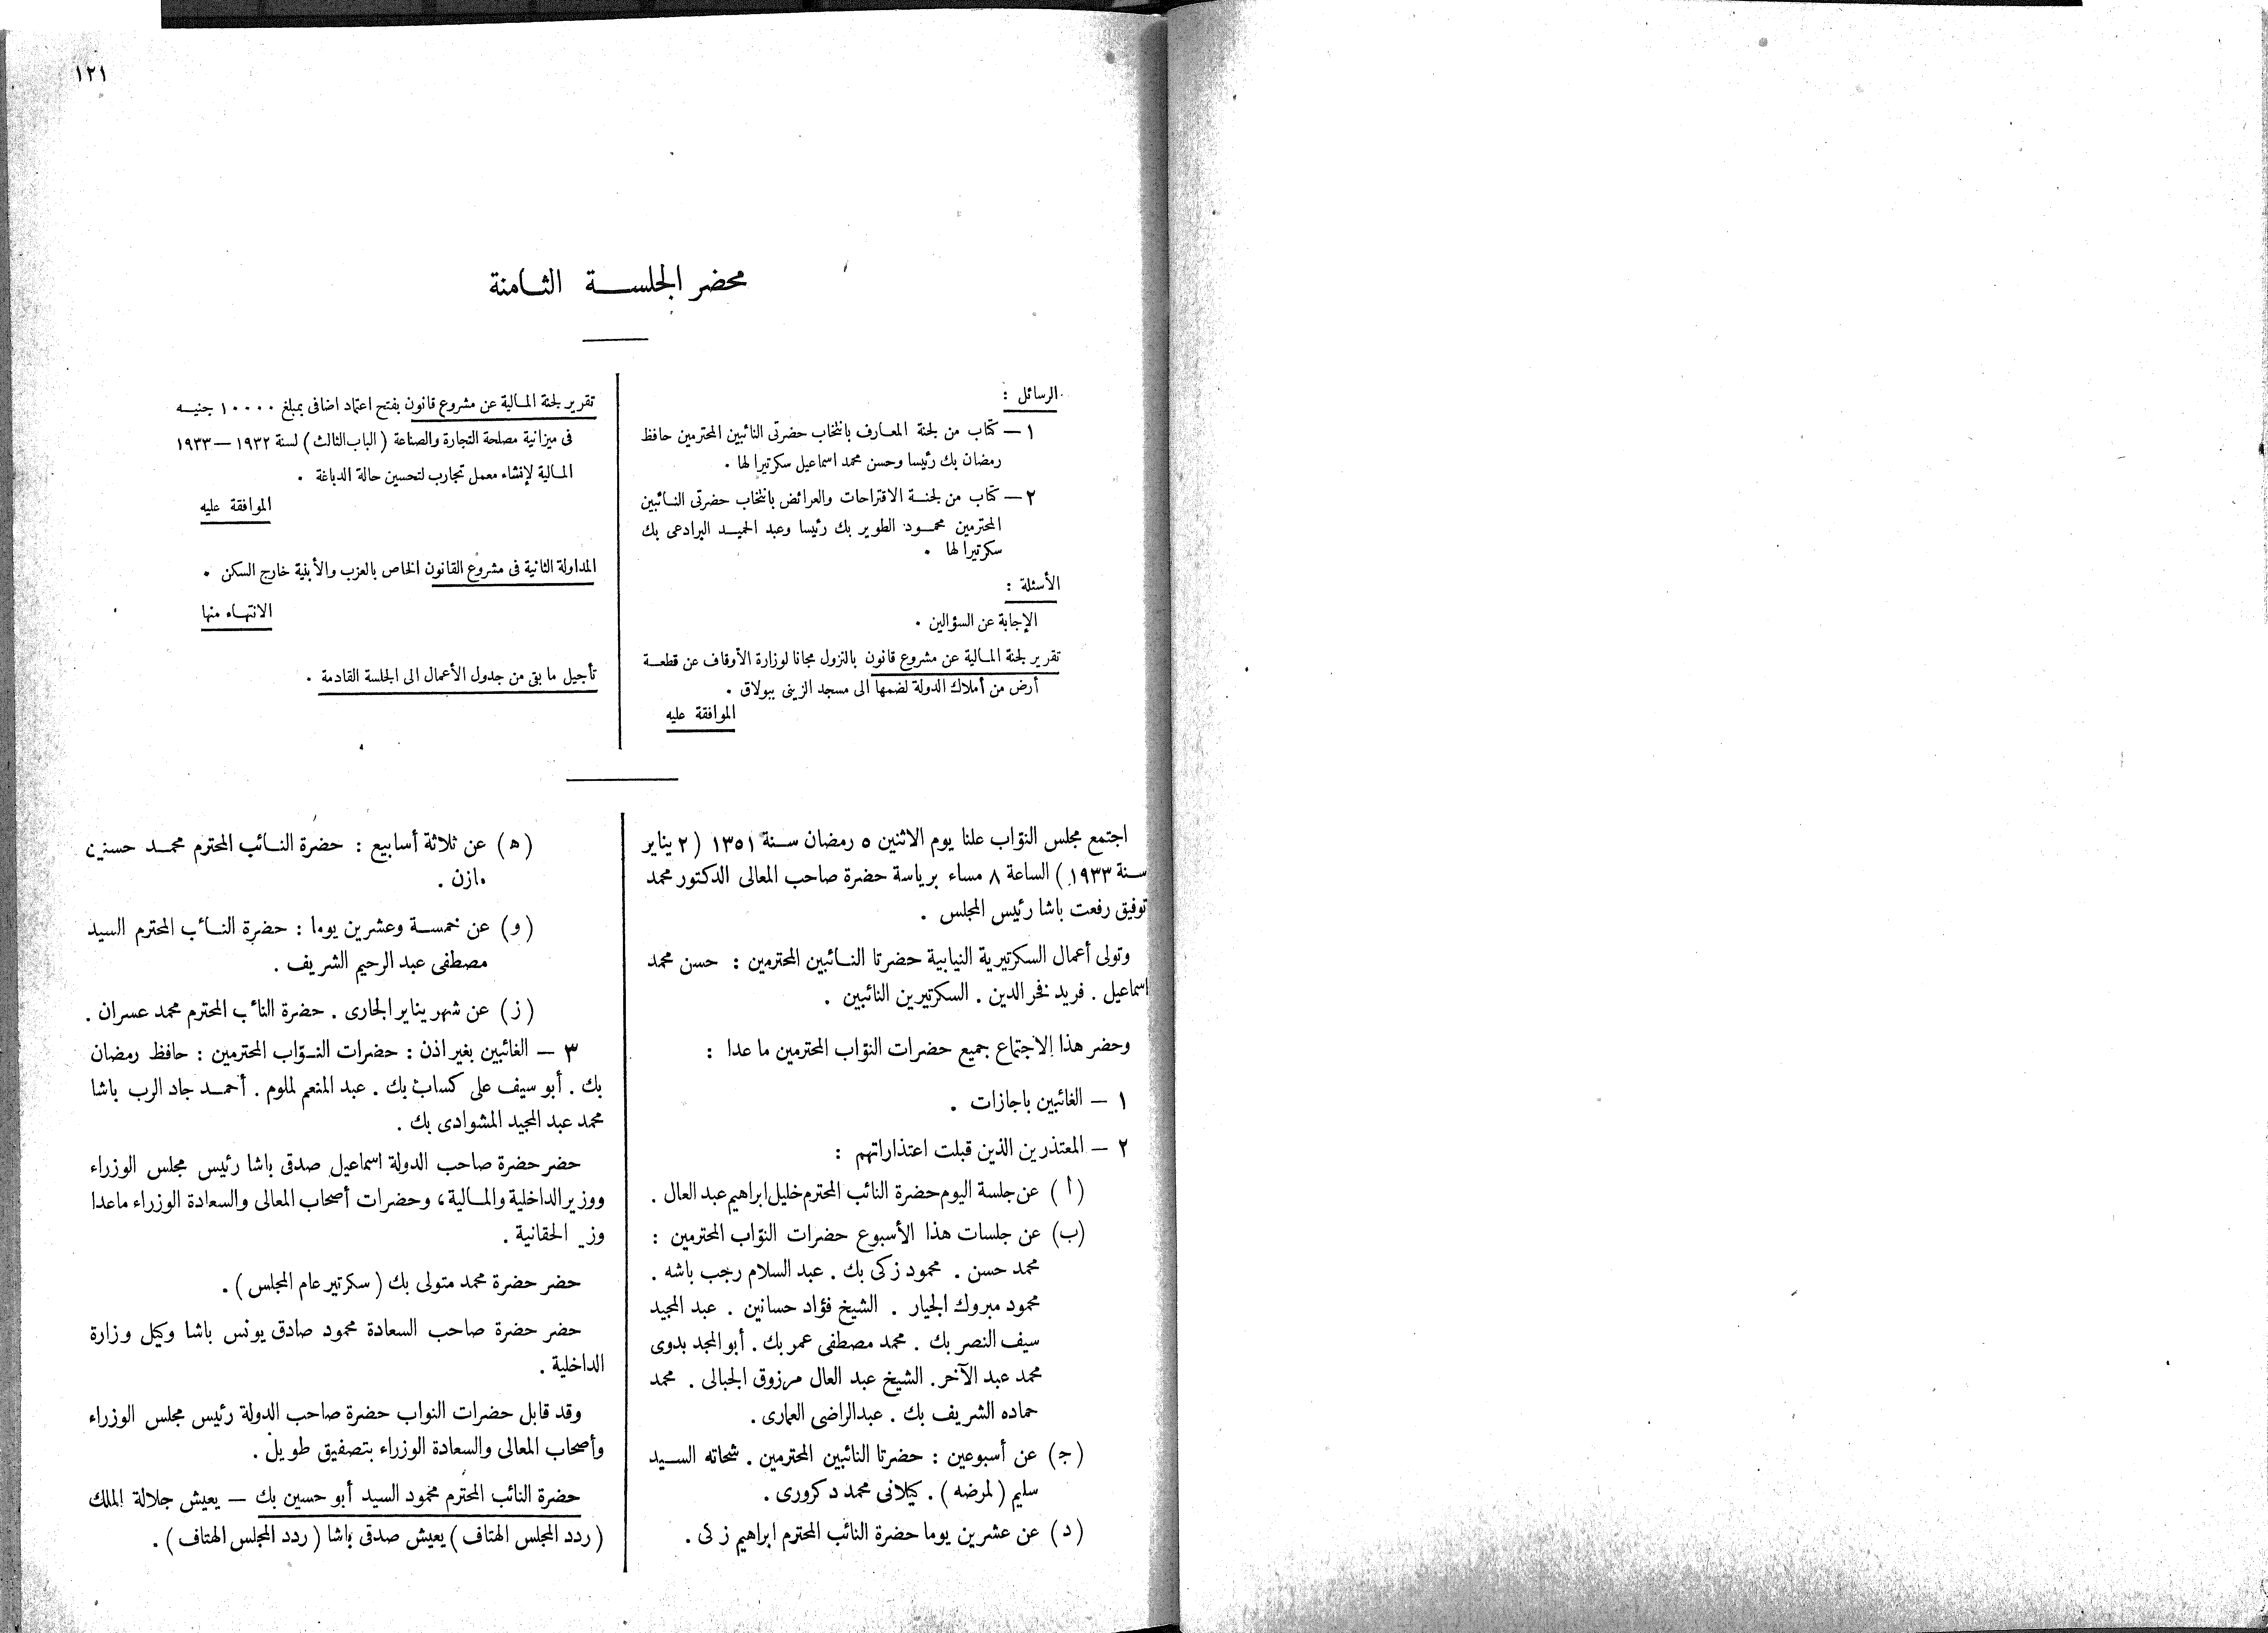 ١٢١
محضر الجلسة الثامنة
الرسائل :
١ — كتاب من لجنة المعارف بانتخاب حضرتى النائبين المحترمين حافظ
رمضان بك رئيسا وحسن محمد اسماعيل سكرتيرا لها .
٢ — كتاب من لجنة الاقتراحات والعرائض بانتخاب حضرتى النائبين
المحترمين محمود الطوير بك رئيسا وعبد الحميد البرادعى بك
سكرتيرا لها .
الأسئلة :
الإجابة عن السؤالين .
تقرير لجنة المالية عن مشروع قانون بالنزول مجانا لوزارة الأوقاف عن قطعة
أرض من أملاك الدولة لضمها الى مسجد الزينى ببولاق .
الموافقة عليه
تقرير لجنة المالية عن مشروع قانون بفتح اعتماد اضافى بمبلغ ١٠٠٠٠ جنيه
فى ميزانية مصلحة التجارة والصناعة ( الباب الثالث ) لسنة ١٩٣٢ — ١٩٣٣
المالية لإنشاء معمل تجارب لتحسين حالة الدباغة .
الموافقة عليه
المداولة الثانية فى مشروع القانون الخاص بالعزب والأبنية خارج السكن .
الانتهاء منها
تأجيل ما بقى من جدول الأعمال الى الجلسة القادمة .
اجتمع مجلس النوّاب علنا يوم الاثنين ٥ رمضان سنة ١٣٥١ ( ٢ يناير
سنة ١٩٣٣ ) الساعة ٨ مساء برياسة حضرة صاحب المعالى الدكتور محمد
توفيق رفعت باشا رئيس المجلس .
وتولى أعمال السكرتيرية النيابية حضرتا النائبين المحترمين : حسن محمد
اسماعيل . فريد فخر الدين . السكرتيرين النائبين .
وحضر هذا الاجتماع جميع حضرات النوّاب المحترمين ما عدا :
١ — الغائبين باجازات .
٢ — المعتذرين الذين قبلت اعتذاراتهم :
( ا ) عن جلسة اليوم حضرة النائب المحترم خليل ابراهيم عبد العال .
(ب) عن جلسات هذا الأسبوع حضرات النوّاب المحترمين :
محمد حسن . محمود زكى بك . عبد السلام رجب باشه .
محمود مبروك الجيار . الشيخ فؤاد حسانين . عبد المجيد
سيف النصر بك . محمد مصطفى عمر بك . أبو المجد بدوى
محمد عبد الآخر . الشيخ عبد العال مرزوق الجبالى . محمد
حماده الشريف بك . عبد الراضى العمارى .
(ج) عن أسبوعين : حضرتا النائبين المحترمين . شحاته السيد
سليم ( لمرضه ) . كيلانى محمد دكرورى .
( د ) عن عشرين يوما حضرة النائب المحترم ابراهيم زكى .
( ه ) عن ثلاثة أسابيع : حضرة النائب المحترم محمد حسنين
مازن .
( و ) عن خمسة وعشرين يوما : حضرة النائب المحترم السيد
مصطفى عبد الرحيم الشريف .
( ز ) عن شهر يناير الجارى . حضرة النائب المحترم محمد عسران .
٣ — الغائبين بغير اذن : حضرات النوّاب المحترمين : حافظ رمضان
بك . أبو سيف على كساب بك . عبد المنعم لملوم . أحمد جاد الرب باشا
محمد عبد المجيد المشوادى بك .
حضر حضرة صاحب الدولة اسماعيل صدقى باشا رئيس مجلس الوزراء
ووزير الداخلية والمالية ، وحضرات أصحاب المعالى والسعادة الوزراء ماعدا
وزير الحقانية .
حضر حضرة محمد متولى بك ( سكرتير عام المجلس ) .
حضر حضرة صاحب السعادة محمود صادق يونس باشا وكيل وزارة
الداخلية .
وقد قابل حضرات النواب حضرة صاحب الدولة رئيس مجلس الوزراء
وأصحاب المعالى والسعادة الوزراء بتصفيق طويل .
حضرة النائب المحترم محمود السيد أبو حسين بك — يعيش جلالة الملك
( ردد المجلس الهتاف ) يعيش صدقى باشا ( ردد المجلس الهتاف ) .